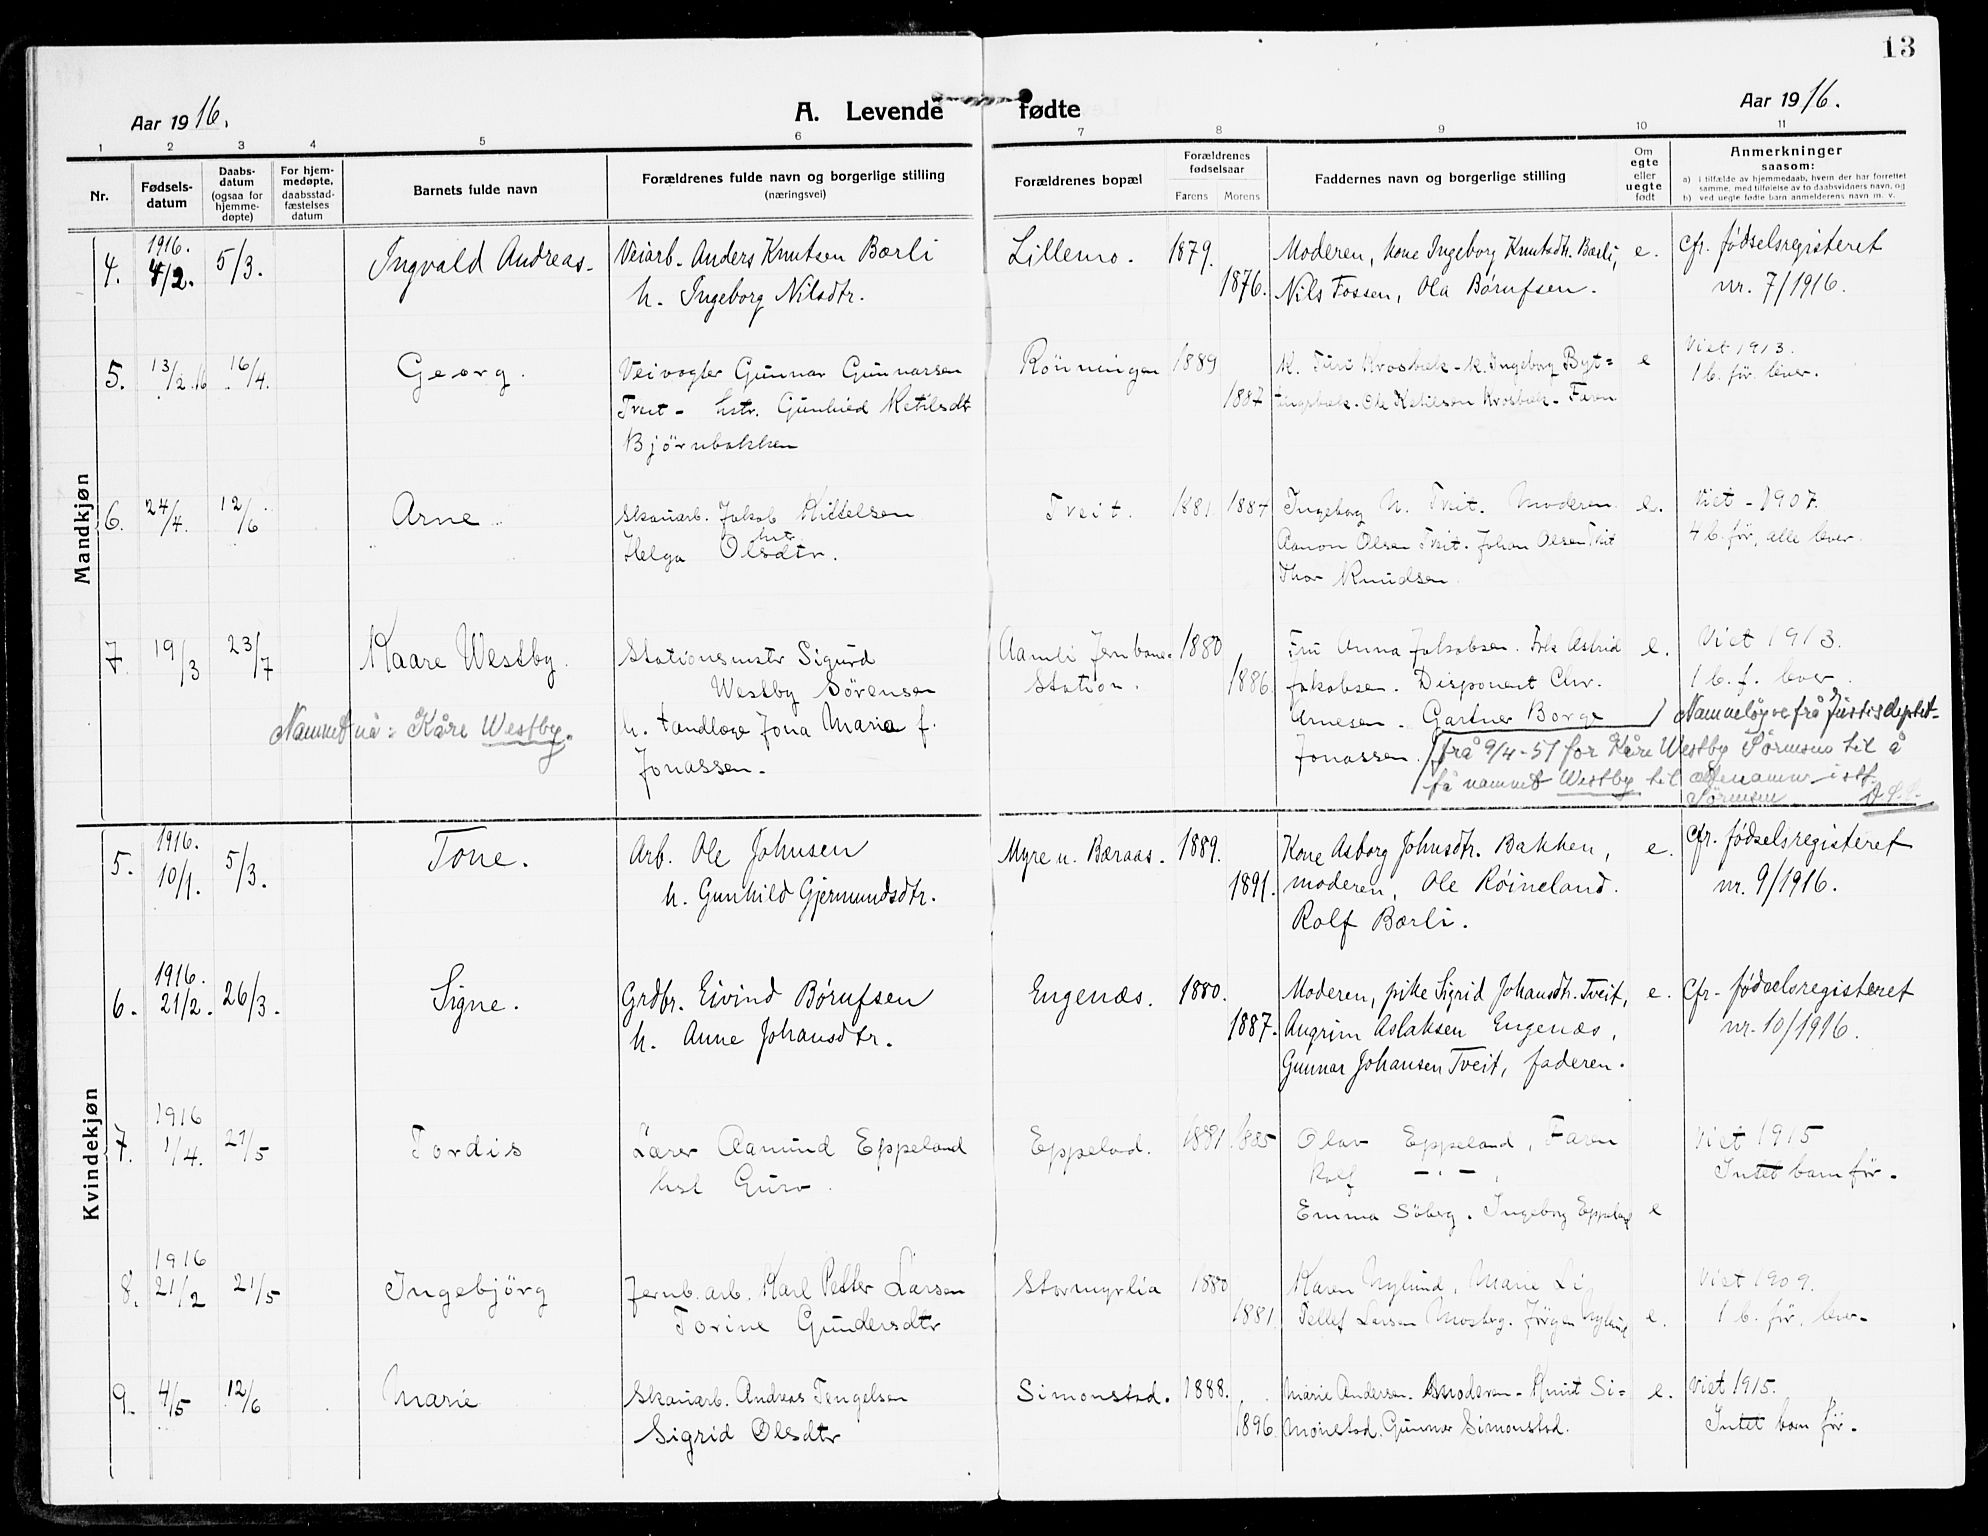 13
Aar 1916.
A. Levende fødte
Aar 1916.
1 2 3 4 5 6 7 8 9 10 11
Nr.
Fødsels-
datum
Daabs-
datum
(ogsaa for
hjemme-
døpte)
For hjem-
medøpte,
daabsstad-
fæstelses
datum
Barnets fulde navn
Forældrenes fulde navn og borgerlige stilling
(næringsvei)
Forældrenes bopæl
Forældrenes
fødselsaar
Farens Morens
Faddernes navn og borgerlige stilling
Om
egte
eller
uegte
født
Anmerkninger
saasom:
a) i tilfælde av hjemmedaab, hvem der har forrettet
samme, med tilføielse av to daabsvidners navn, og
b) ved uegte fødte barn anmelderens navn m. v.
Mandkjøn
4. 1916. 4/2. 5/3. Ingvald Andreas. Veiarb. Anders Knutsen Bærli Lillemo. 1879. Moderen, kone Ingeborg Knutsdtr. Bærli, e. Cfr. fødselsregisteret
h. Ingeborg Nilsdtr. 1876. Nils Fossen, Ola Børufsen. nr. 7/1916.
5. 13/2 16 16/4. Georg. Veivogter Gunnar Gunnarsen Rönningen 1889 K. Turi Krosbæk - K. Ingeborg Byt= e Viet 1913.
Tveit - hstr. Gunhild Ketilsdt 1887 tingsbæk. Ole Ketilson Krosbæk - Faren 1 b. før. lever.
Bjørnbakken
6. 24/4. 12/6 Arne Skauarb. Jakob Kittelsen Tveit. 1881 1884 Ingeborg N. Tveit. Moderen. e. Viet - 1907.
hstr
Helga Olsdtr. Aanon Olsen Tveit. Johan Olsen Tveit 4 b. før, alle lever.
Thor Knudsen
7. 19/3 23/7 Kaare Westby. Stationsmstr Sigurd Aamli Jernbane- 1880 Fru Anna Jakobsen. Frk Astrid e. Viet 1913.
Westby Sörensen Station. 1886. Jakobsen. Disponent Chr. 1 b. f. lever
Namnet nå: Kåre Westby. h. tandlæge Jona Maria f. Arnesen - Gartner Borge Namneløyve frå Justisdeptet-
Jonassen. Jonassen. frå 9/4-51 for Kåre Westby Sörensen til å
få namnet Westby til ættenamn i stf.
Sörensen
Kvindekjøn
5. 1916. 10/1. 5/3. Tone. Arb. Ole Johnsen Myre u. Bæraas. 1889. Kone Asborg Johnsdtr. Bakken, e. Cfr. fødselsregisteret
h. Gunhild Gjermundsdtr. 1891. moderen, Ole Røineland. nr. 9/1916.
Rolf Bærli.
6. 1916. 21/2. 26/3. Signe. Grdbr. Eivind Børufsen Engenæs. 1880. Moderen, pike Sigrid Johansdtr. Tveit, e. Cfr. fødselsregisteret
h. Anne Johansdtr. 1887. Angrim Aslaksen Engenæs, nr. 10/1916.
Gunnar Johansen Tveit, faderen.
7. 1916 1/4. 21/5 Tordis Lærer Aamund Eppeland Eppelad. 1881 1885 Olav Eppeland, Faren Viet 1915
hst Guro. Rolf -"- , Intet barn før.
Emma Söberg. Ingeborg Eppeland e
8. 1916 21/2 21/5 Ingebjörg Jernb. arb. Karl Petter Larsen Stormyrlia 1880 Karen Nylund, Marie Li Viet 1909.
Torine Gundersdtr 1881 Tellef Larsen Mosberg. Jörgen Nylund e. 1 b. før, lever.
9. 4/5 12/6 Marie Skauarb. Andreas Tengelsen Simonstad. 1888. Marie Andersen. Moderen - Knut Si= e. Viet 1915.
Sigrid Olsdtr 1896. monstad. Gunnar Simonstad. Intet barn før.